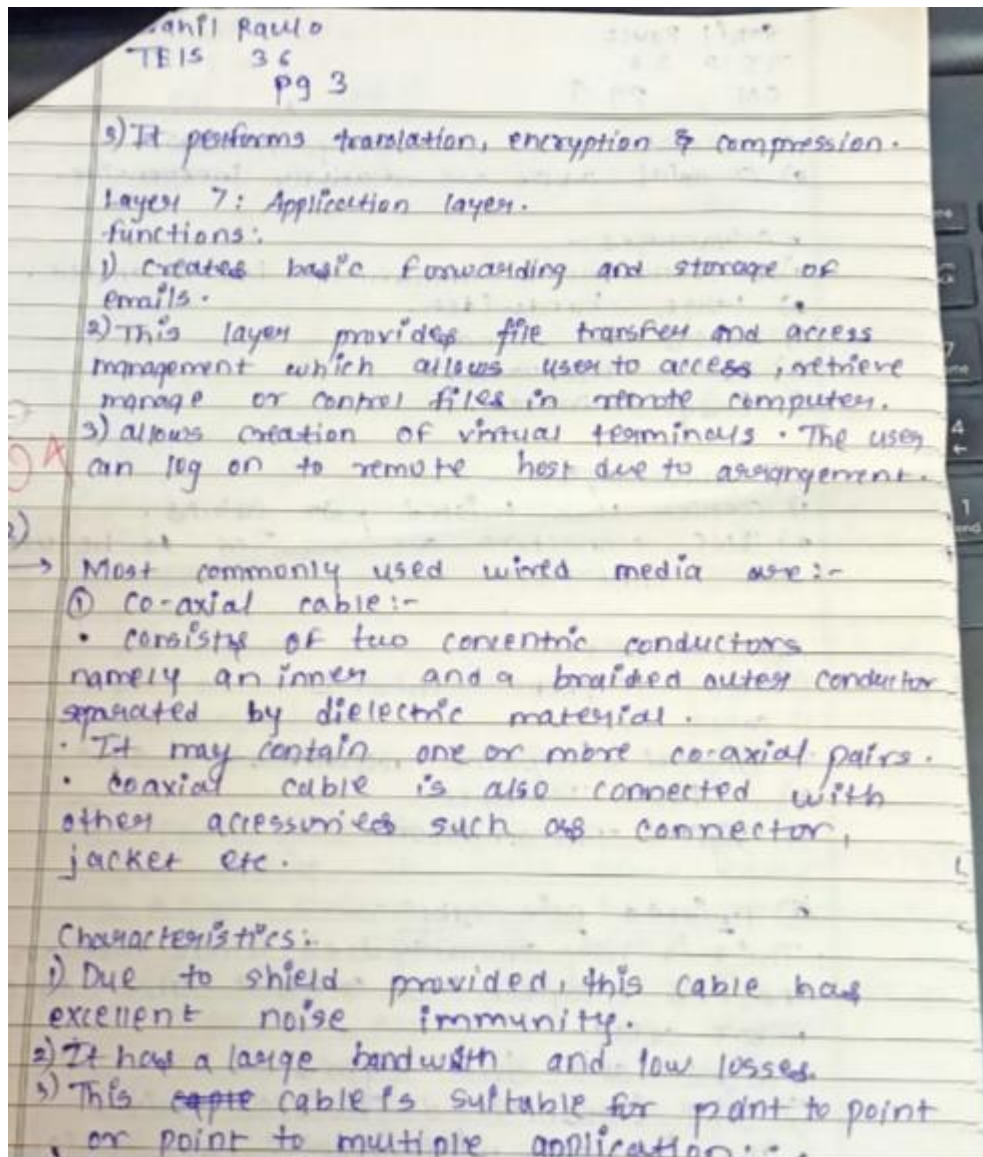 Raulo
TEIS 36
pg 3
3) It performs translation, encryption & compression.
Layer 7: Application layer.
functions:
1) Creates basic forwarding and storage of
emails.
2) This layer provides file transfer and access
management which allows user to access, retrieve
manage or control files in remote computer.
3) allows creation of virtual terminals. The user
can log on to remote host due to arrangement.
→ Most commonly used wired media are:-
① Co-axial cable:-
• consists of two concentric conductors
namely an inner and a braided outer conductor
separated by dielectric material.
• It may contain one or more co-axial pairs.
• coaxial cable is also connected with
other accessories such as connector,
jacket etc.
Characteristics:
1) Due to shield provided, this cable has
excellent noise immunity.
2) It has a large bandwith and low losses.
3) This cable is suitable for point to point
or point to multiple application.